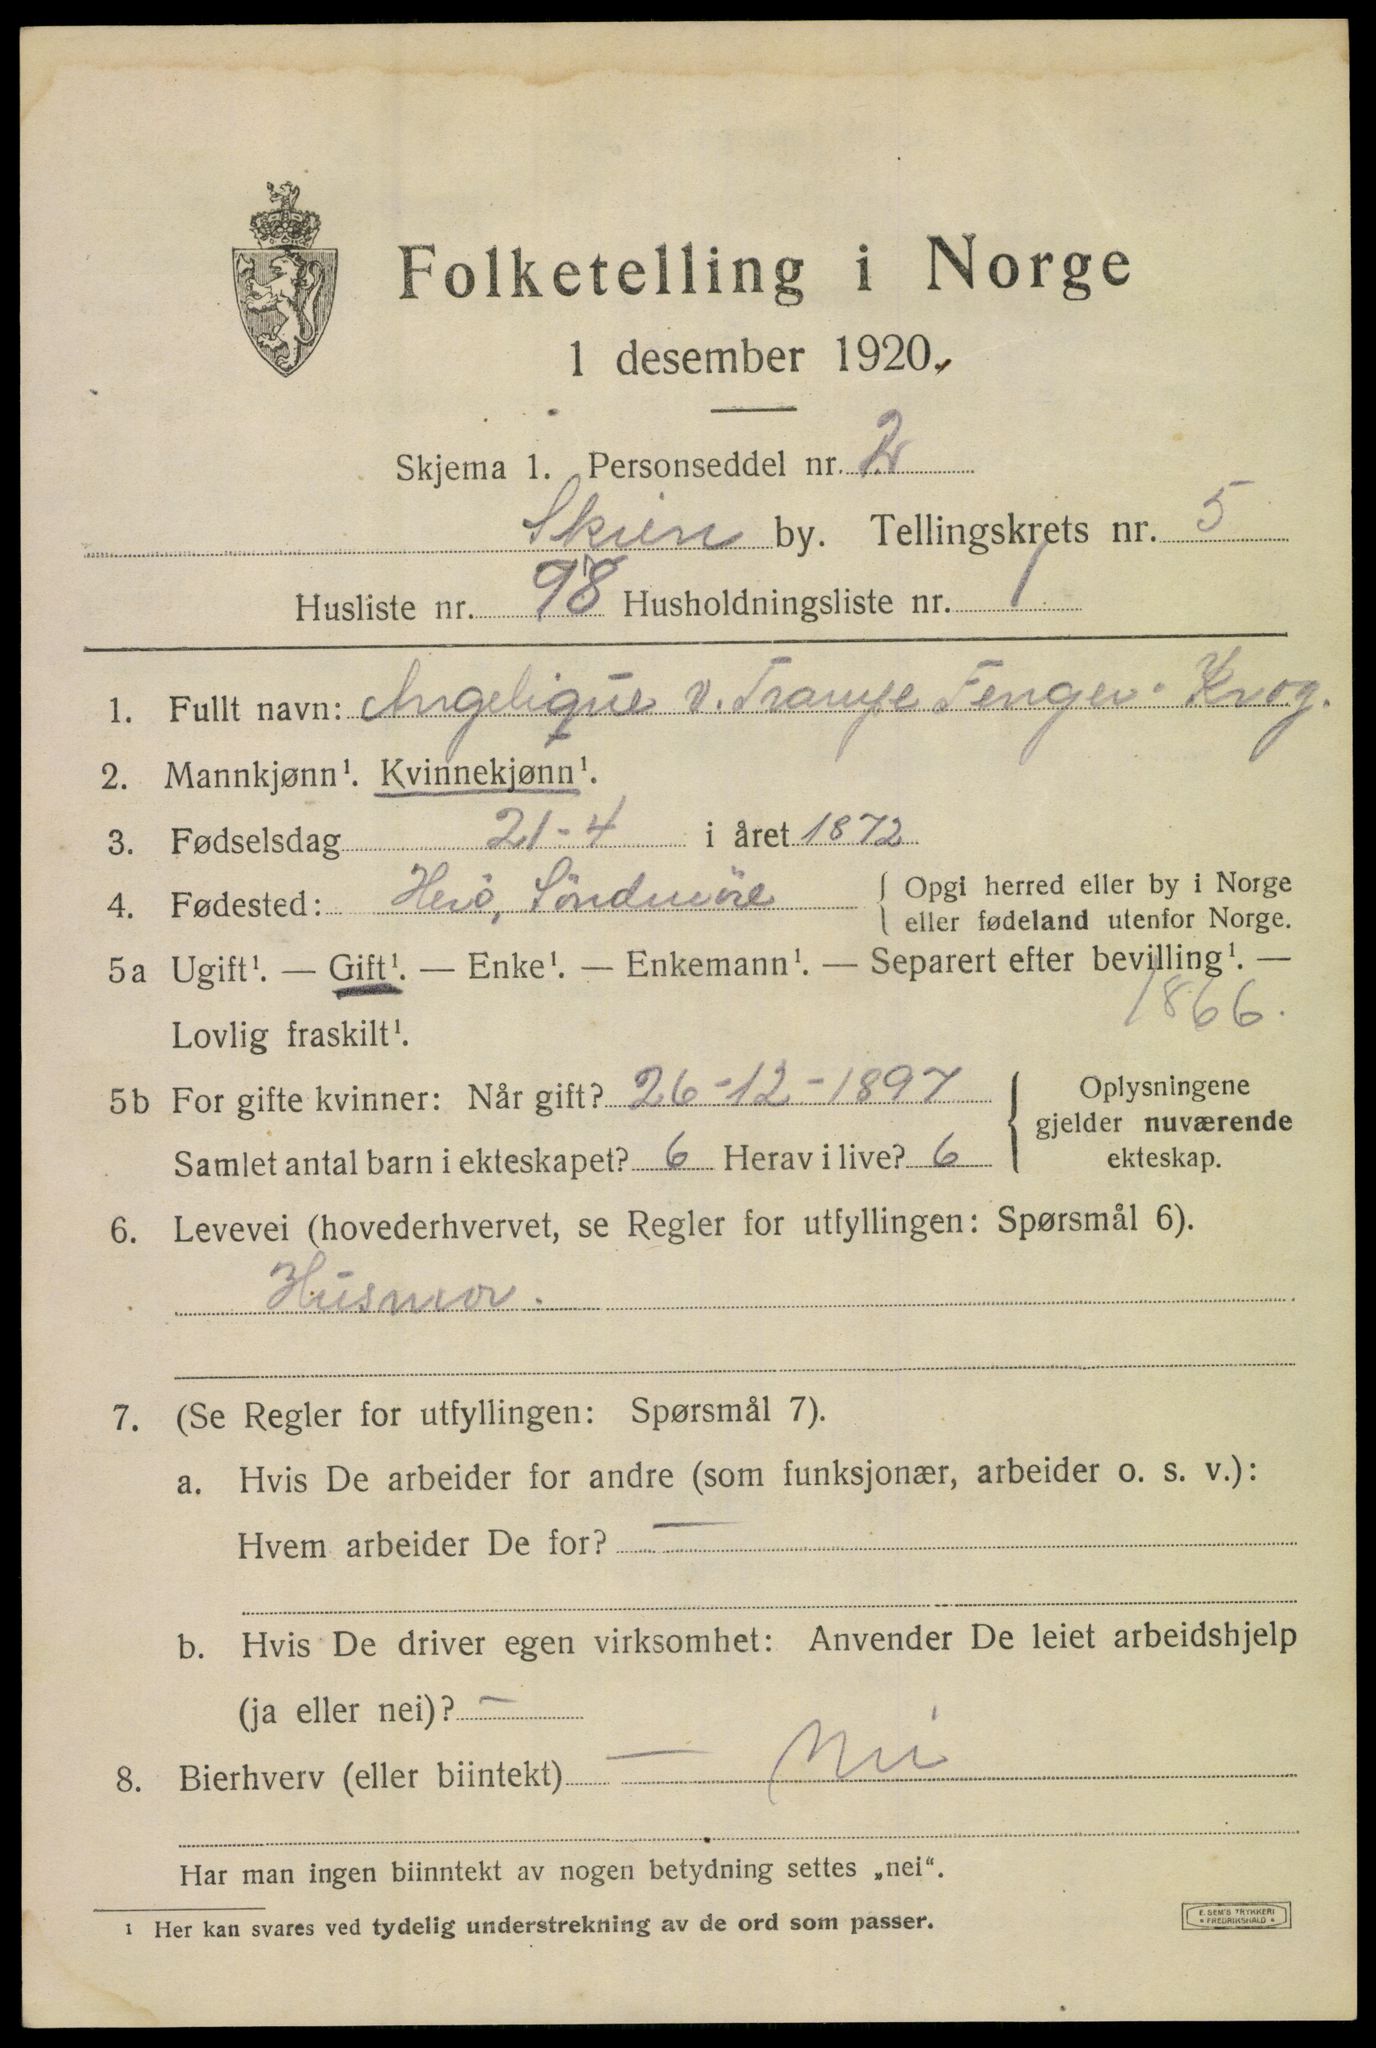 Folketelling i Norge
1 desember 1920.
Skjema 1. Personseddel nr. 2
Skien by. Tellingskrets nr. 5
Husliste nr. 98 Husholdningsliste nr. 1
1. Fullt navn: Angelique v. Trampe Fenger-Krog.
2. Mannkjønn¹. Kvinnekjønn¹.
3. Fødselsdag 21-4 i året 1872
4. Fødested: Herö, Söndmöre { Opgi herred eller by i Norge
eller fødeland utenfor Norge.
5a Ugift¹. — Gift¹. — Enke¹. — Enkemann¹. — Separert efter bevilling¹. —
Lovlig fraskilt¹. 1866.
5b For gifte kvinner: Når gift? 26-12-1897
Samlet antal barn i ekteskapet? 6 Herav i live? 6
Oplysningene
gjelder nuværende
ekteskap.
6. Levevei (hovederhvervet, se Regler for utfyllingen: Spørsmål 6).
Husmor.
7. (Se Regler for utfyllingen: Spørsmål 7).
a. Hvis De arbeider for andre (som funksjonær, arbeider o. s. v.):
Hvem arbeider De for? —
b. Hvis De driver egen virksomhet: Anvender De leiet arbeidshjelp
(ja eller nei)? —
8. Bierhverv (eller biintekt) — Nei
Har man ingen biinntekt av nogen betydning settes „nei“.
¹ Her kan svares ved tydelig understrekning av de ord som passer.
E. SEM'S TRYKKERI
• FREDRIKSHALD •